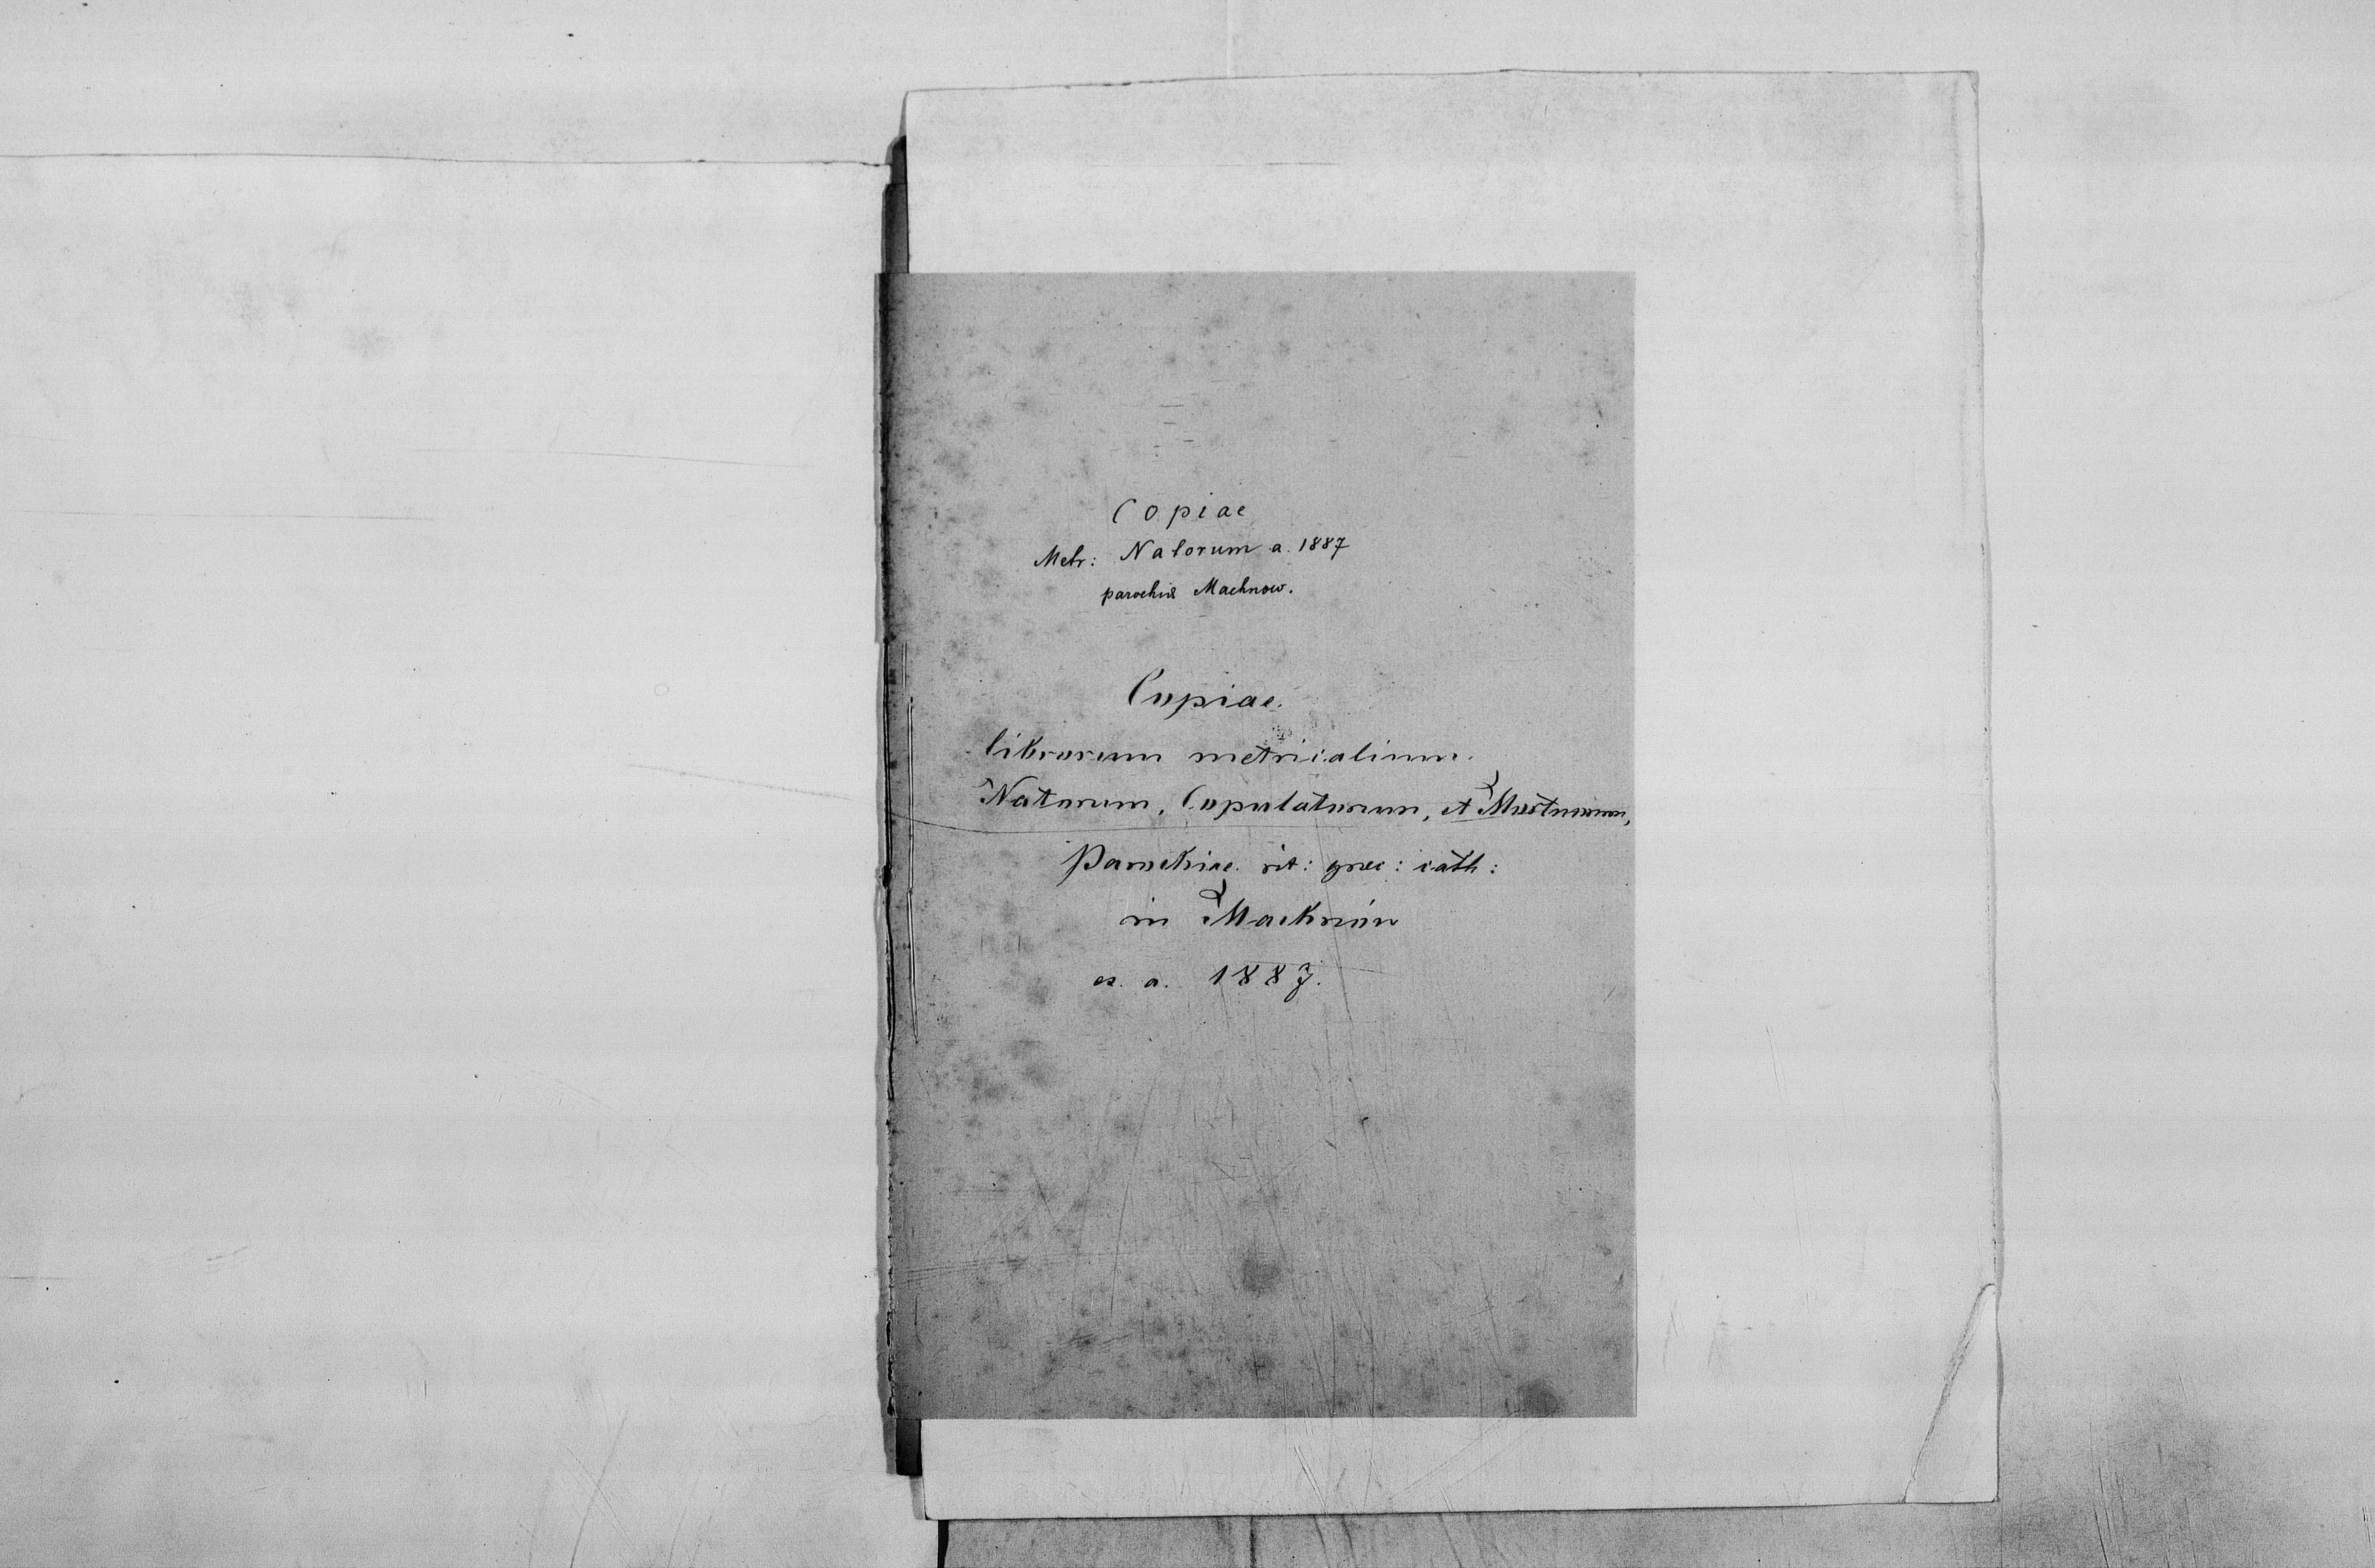 Copiae
Metr: Natorum a. 1887
parochia Machnow.
Copiae
librorum metricalium
Natorum, Copulatorum, et Mortuorum,
Parochiae rit: graec: cath:
in Machnów
es. a. 1887.